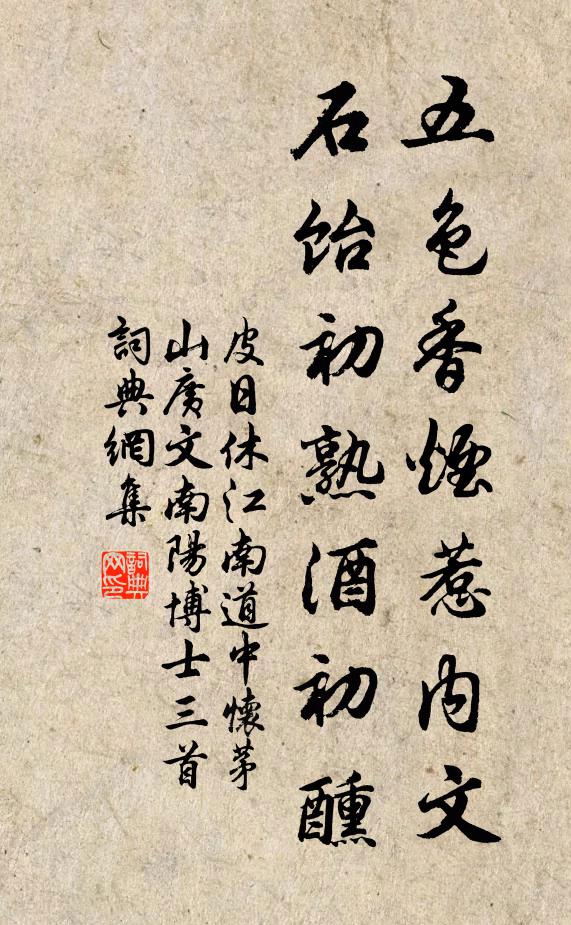 五色香煙惹内文
石飴初熟酒初醺
皮日休江南道中懷茅
山廣文南陽博士三首
詞典網集
詞典
网印